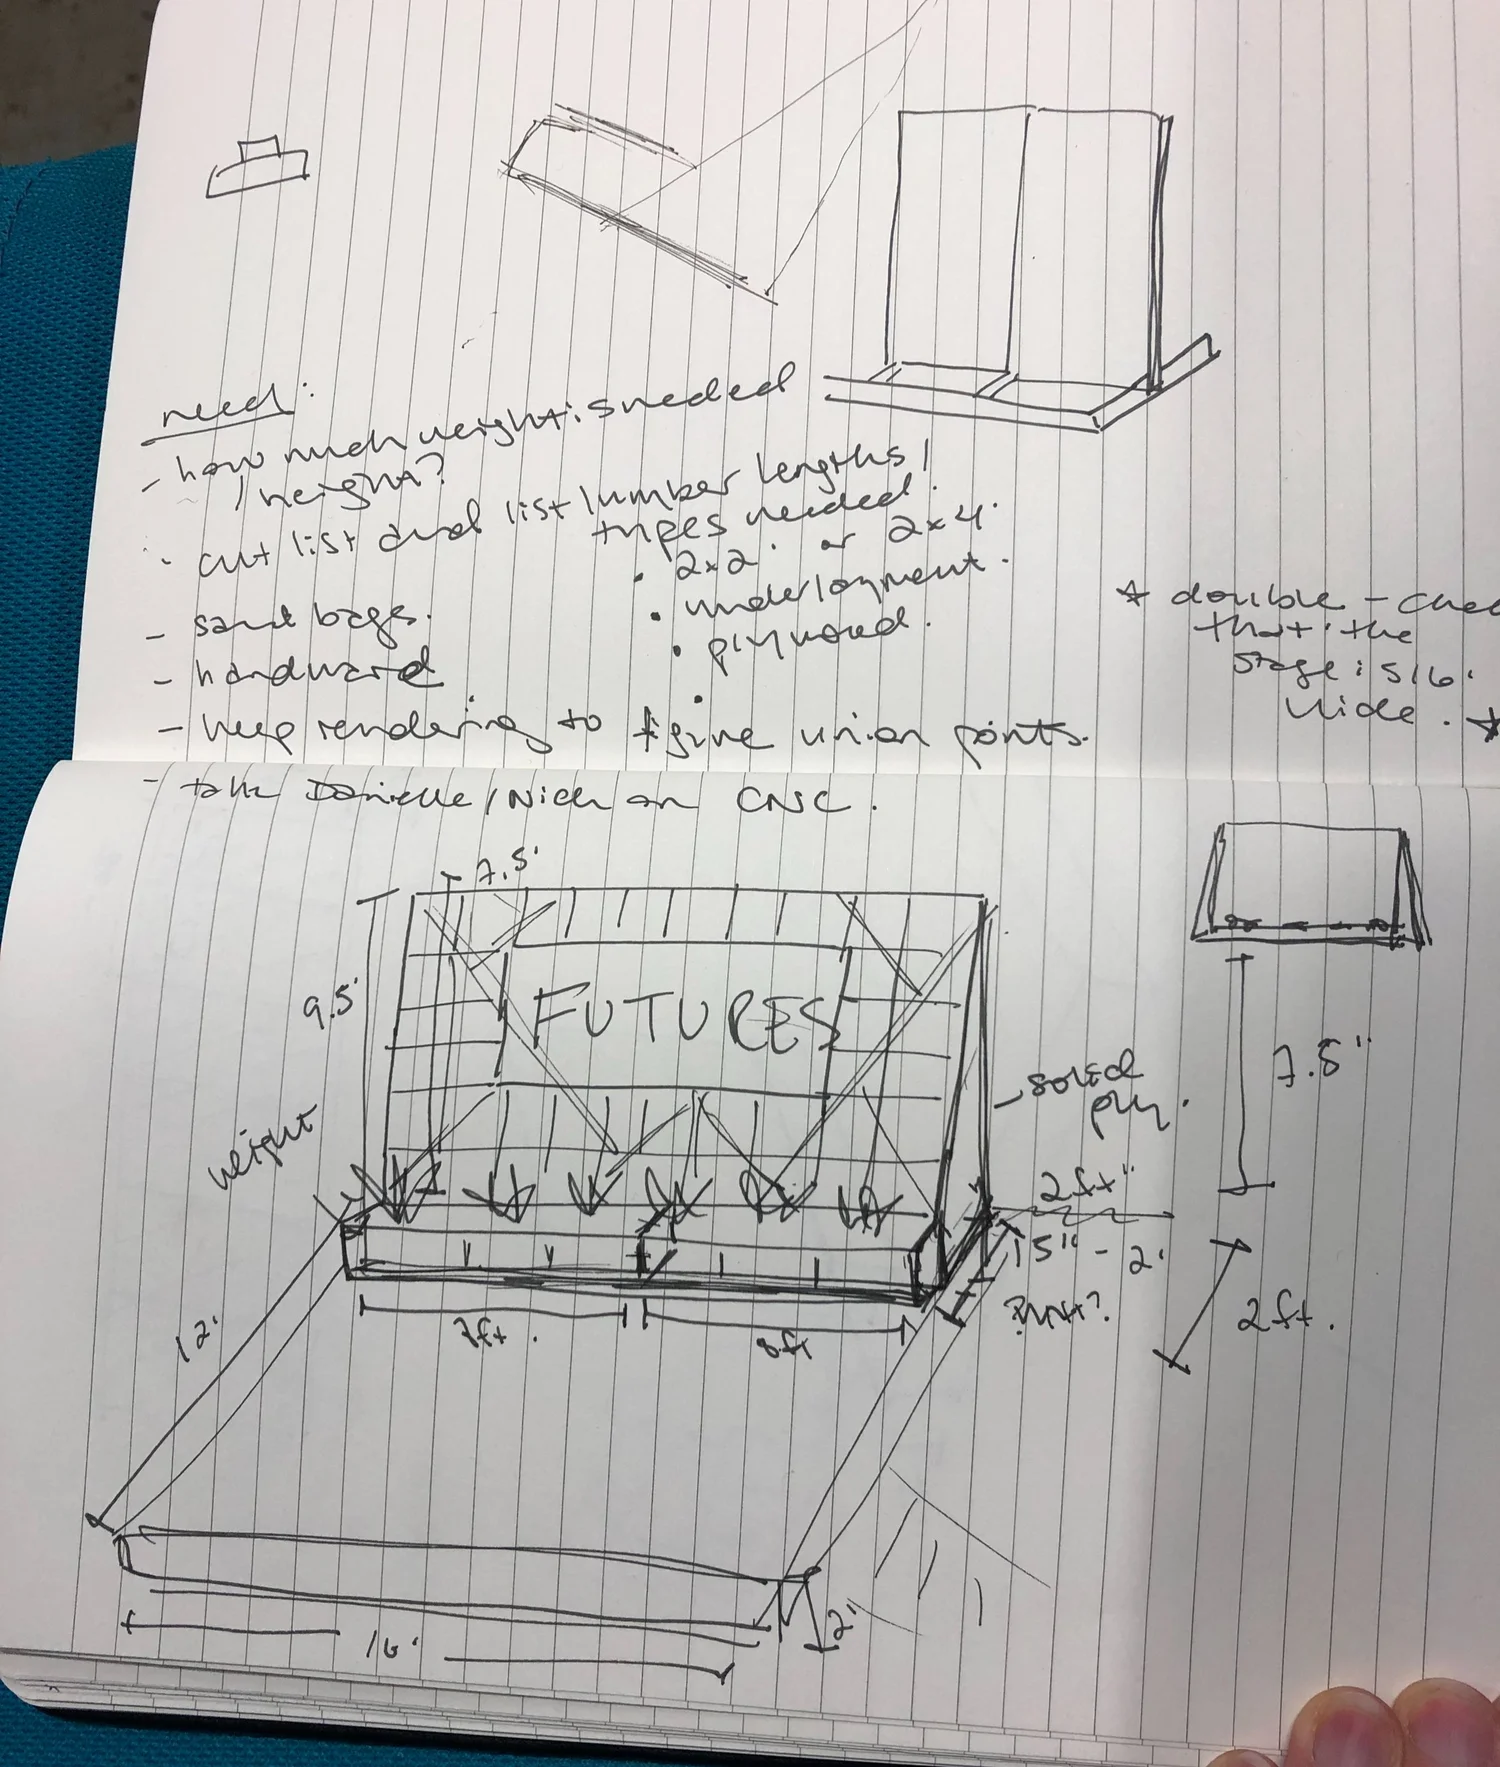 need:
- how much weight is needed
/ height?
- cut list and list lumber lengths /
types needed.
• 2x2' or 2x4'
• underlayment.
• plywood.
- sand bags.
- hardward
- keep rendering to figure union points.
- talk Danielle/Nick on CNC.
* double-chec
that the
stage is 16'
wide. *
7.5'
9.5'
FUTURES
weight
solid
ply.
2ft"
15" - 2'
7.5"
2ft.
8ft
12'
16'
2'